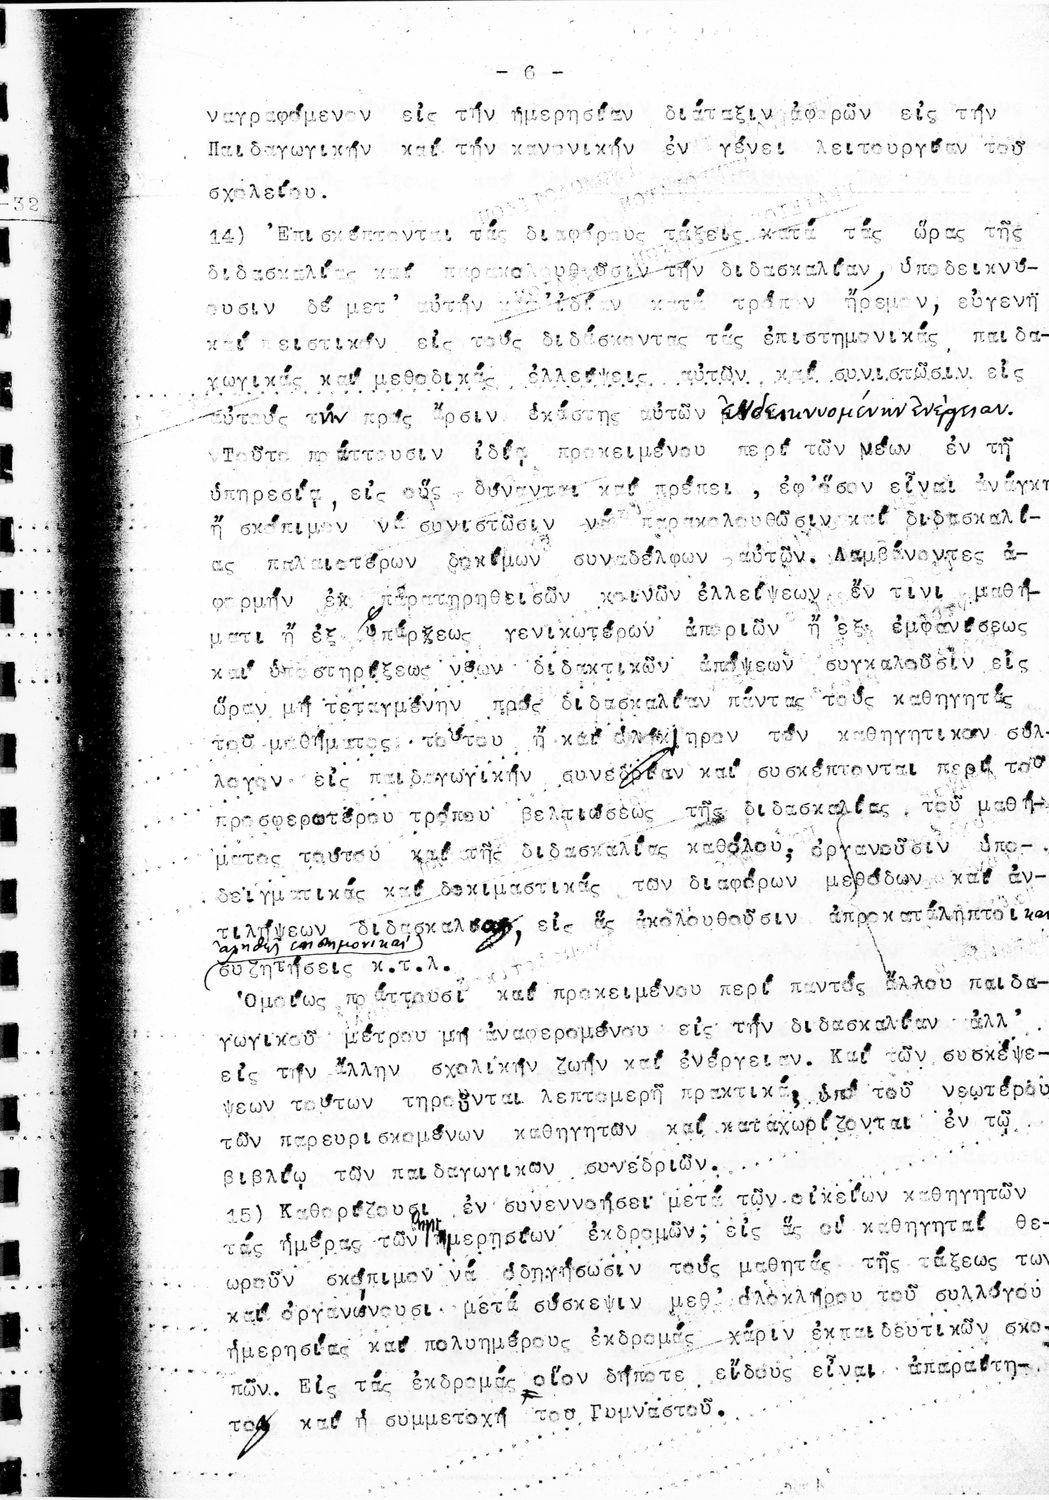 - 6 -
ναγραφόμενον εἰς τήν ἡμερησίαν διάταξιν ἀφορῶν εἰς τήν
Παιδαγωγικήν καί τήν κανονικήν ἐν γένει λειτουργίαν τοῦ
σχολείου.
-32
14) Ἐπισκέπτονται τάς διαφόρους τάξεις κατά τάς ὥρας τῆς
διδασκαλίας καί παρακολουθοῦσιν τήν διδασκαλίαν, ὑποδεικνύ-
ουσιν δέ μετ' αὐτήν κατ' ἰδίαν κατά τρόπον ἤρεμον, εὐγενῆ
καί πειστικόν εἰς τούς διδάσκοντας τάς ἐπιστημονικάς, παιδα-
γωγικάς καί μεθοδικάς ἐλλείψεις αὐτῶν καί συνιστῶσιν εἰς
αὐτούς τήν πρός ἄρσιν ἑκάστης αὐτῶν ἐνδεικνυομένην ἐνέργειαν.
Τοῦτο πράττουσιν ἰδίᾳ προκειμένου περί τῶν νέων ἐν τῇ
ὑπηρεσίᾳ, εἰς οὕς δύνανται καί πρέπει, ἐφ'ὅσον εἶναι ἀνάγκη
ἤ σκόπιμον νά συνιστῶσιν νά παρακολουθῶσιν καί διδασκαλί-
ας παλαιοτέρων δοκίμων συναδέλφων αὐτῶν. Λαμβάνοντες ἀ-
φορμήν ἐκ παρατηρηθεισῶν κοινῶν ἐλλείψεων ἔν τινι μαθή-
ματι ἤ ἐξ ὑπάρξεως γενικωτέρων ἀποριῶν ἤ ἐξ ἐμφανίσεως
καί ὑποστηρίξεως νέων διδακτικῶν ἀπόψεων συγκαλοῦσιν εἰς
ὥραν μή τεταγμένην πρός διδασκαλίαν πάντας τούς καθηγητάς
τοῦ μαθήματος τούτου ἤ καί ὁλόκληρον τόν καθηγητικόν σύλ-
λογον εἰς παιδαγωγικήν συνεδρίαν καί συσκέπτονται περί τοῦ
προσφερωτέρου τρόπου βελτιώσεως τῆς διδασκαλίας τοῦ μαθή-
ματος τούτου καί τῆς διδασκαλίας καθόλου, ὀργανοῦσιν ὑπο-
δειγματικάς καί δοκιμαστικάς τῶν διαφόρων μεθόδων καί ἀν-
τιλήψεων διδασκαλίας, εἰς ἅς ἀκολουθοῦσιν ἀπροκατάληπτοι και
ἀληθεῖς ἐπιστημονικαί
συζητήσεις κ.τ.λ.
Ὁμοίως πράττουσι καί προκειμένου περί παντός ἄλλου παιδα-
γωγικοῦ μέτρου μή ἀναφερομένου εἰς τήν διδασκαλίαν ἀλλ'
εἰς τήν ἄλλην σχολικήν ζωήν καί ἐνέργειαν. Καί τῶν συσκέψε-
ψεων τούτων τηροῦνται λεπτομερῆ πρακτικά, ὑπό τοῦ νεωτέρου
τῶν παρευρισκομένων καθηγητῶν καί καταχωρίζονται ἐν τῷ
βιβλίῳ τῶν παιδαγωγικῶν συνεδριῶν.
15) Καθορίζουσι ἐν συνεννοήσει μετά τῶν οἰκείων καθηγητῶν
τάς ἡμέρας τῶν ἡμιημερησίων ἐκδρομῶν, εἰς ἅς οἱ καθηγηταί θε-
ωροῦν σκόπιμον νά ὁδηγήσωσιν τούς μαθητάς τῆς τάξεως των
καί ὀργανώνουσι μετά σύσκεψιν μεθ' ὁλοκλήρου τοῦ συλλόγου
ἡμερησίας καί πολυημέρους ἐκδρομάς χάριν ἐκπαιδευτικῶν σκο-
πῶν. Εἰς τάς ἐκδρομάς οἵον δήποτε εἴδους εἶναι ἀπαραίτη-
τος καί ἡ συμμετοχή τοῦ Γυμναστοῦ.